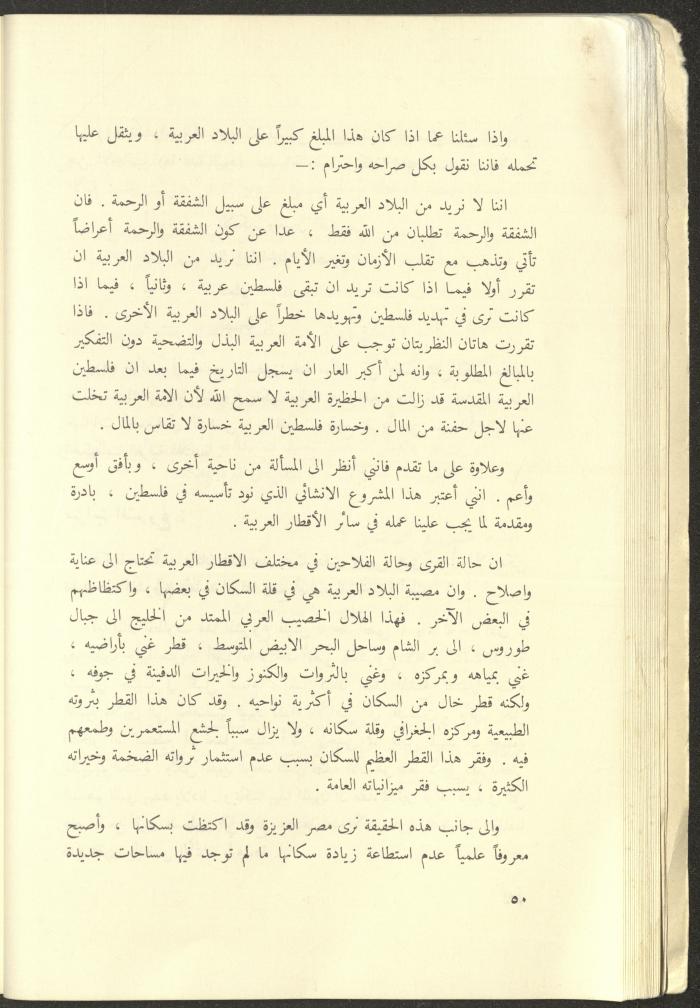 واذا سئلنا عما اذا كان هذا المبلغ كبيراً على البلاد العربية ، ويثقل عليها
تحمله فاننا نقول بكل صراحه واحترام :—
اننا لا نريد من البلاد العربية أي مبلغ على سبيل الشفقة أو الرحمة . فان
الشفقة والرحمة تطلبان من الله فقط ، عدا عن كون الشفقة والرحمة أعراضاً
تأتي وتذهب مع تقلب الأزمان وتغير الأيام . اننا نريد من البلاد العربية ان
تقرر أولا فيما اذا كانت تريد ان تبقى فلسطين عربية ، وثانياً ، فيما اذا
كانت ترى في تهديد فلسطين وتهويدها خطراً على البلاد العربية الأخرى . فاذا
تقررت هاتان النظريتان توجب على الأمة العربية البذل والتضحية دون التفكير
بالمبالغ المطلوبة ، وانه لمن أكبر العار ان يسجل التاريخ فيما بعد ان فلسطين
العربية المقدسة قد زالت من الحظيرة العربية لا سمح الله لأن الامة العربية تخلت
عنها لاجل حفنة من المال . وخسارة فلسطين العربية خسارة لا تقاس بالمال .
وعلاوة على ما تقدم فانني أنظر الى المسألة من ناحية أخرى ، وبأفق أوسع
وأعم . انني أعتبر هذا المشروع الانشائي الذي نود تأسيسه في فلسطين ، بادرة
ومقدمة لما يجب علينا عمله في سائر الأقطار العربية .
ان حالة القرى وحالة الفلاحين في مختلف الاقطار العربية تحتاج الى عناية
واصلاح . وان مصيبة البلاد العربية هي في قلة السكان في بعضها ، واكتظاظهم
في البعض الآخر . فهذا الهلال الخصيب العربي الممتد من الخليج الى جبال
طوروس ، الى بر الشام وساحل البحر الابيض المتوسط ، قطر غني بأراضيه ،
غني بمياهه وبمركزه ، وغني بالثروات والكنوز والخيرات الدفينة في جوفه ،
ولكنه قطر خال من السكان في أكثرية نواحيه . وقد كان هذا القطر بثروته
الطبيعية ومركزه الجغرافي وقلة سكانه ، ولا يزال سبباً لجشع المستعمرين وطمعهم
فيه . وفقر هذا القطر العظيم للسكان بسبب عدم استثمار ثرواته الضخمة وخيراته
الكثيرة ، يسبب فقر ميزانياته العامة .
والى جانب هذه الحقيقة نرى مصر العزيزة وقد اكتظت بسكانها ، وأصبح
معروفاً علمياً عدم استطاعة زيادة سكانها ما لم توجد فيها مساحات جديدة
٥٠